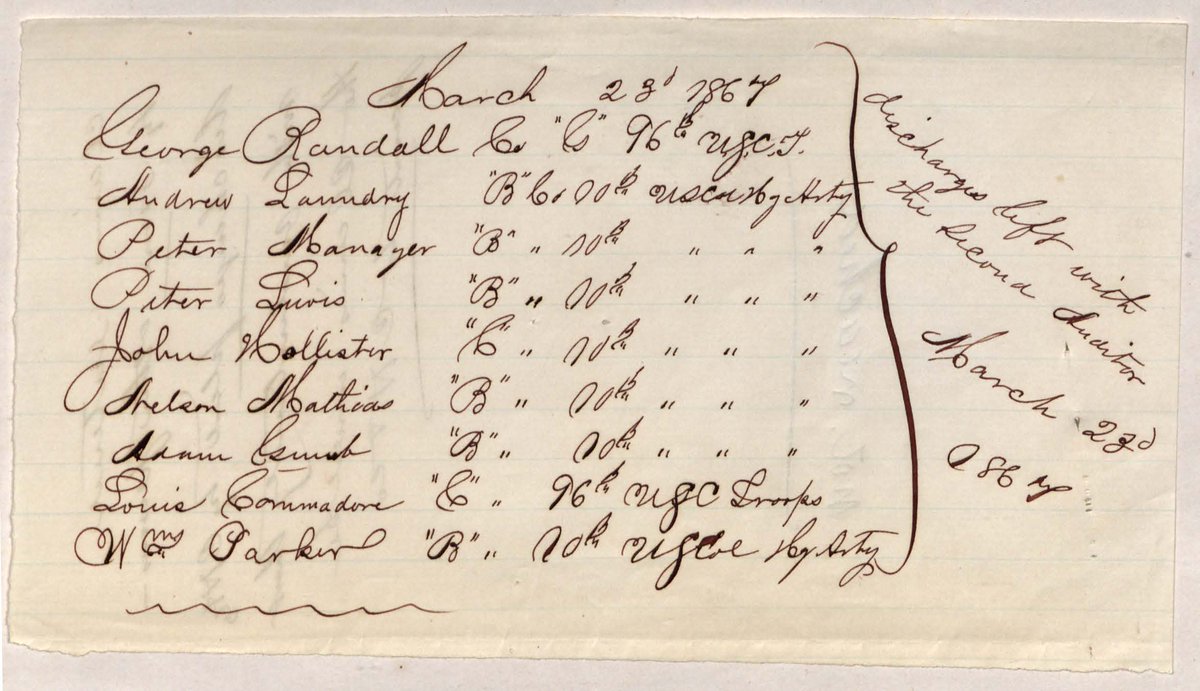 March 23d 1867
George Randall Co "G" 96th U.S.C.T.
Andrew Laundry "B" Co 10th USCol Hvy Arty
Peter Manager "B" " 10th " " "
Peter Lewis "B" " 10th " " "
John Hollister "C" " 10th " " "
Nelson Mathias "B" " 10th " " "
Adam "B" " 10th " " "
Louis Commadore "C" " 96th USC Troops
Wm Parker "B" " 10th USCol Hy Arty
discharges left with
the Second Auditor
March 23d
1867